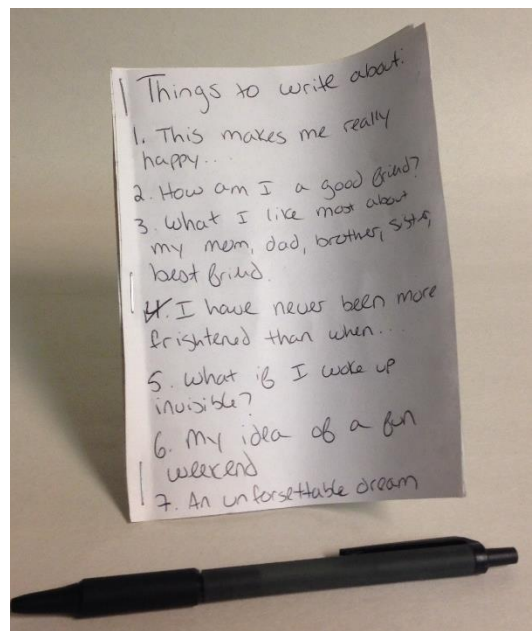 Things to write about:
1. This makes me really
happy...
2. How am I a good friend?
3. What I like most about
my mom, dad, brother, sister,
best friend.
4. I have never been more
frightened than when...
5. What if I woke up
invisible?
6. My idea of a fun
weekend
7. An unforgettable dream